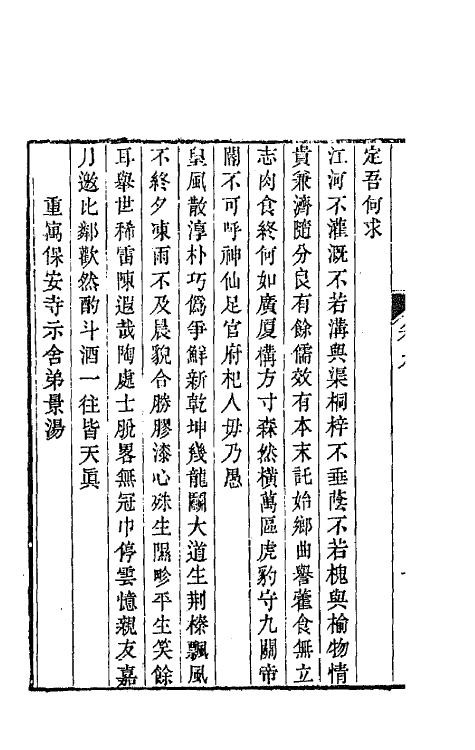 定吾何求
江河不灌溉不若溝與渠桐梓不垂蔭不若槐與榆物情
貴兼濟隨分良有餘儒效有本末託始鄉曲譽藿食無立
志肉食終何如廣厦構方寸森然橫萬區虎豹守九關帝
閽不可呼神仙足官府杞人毋乃愚
皇風散淳朴巧僞爭鮮新乾坤幾龍鬭大道生荆榛飄風
不終夕凍雨不及晨貌合勝膠漆心殊生隰畛平生笑餘
耳舉世稀雷陳遐哉陶處士脫畧無冠巾停雲憶親友嘉
月邀比鄰歡然酌斗酒一往皆天眞
重寓保安寺示舍弟景湯